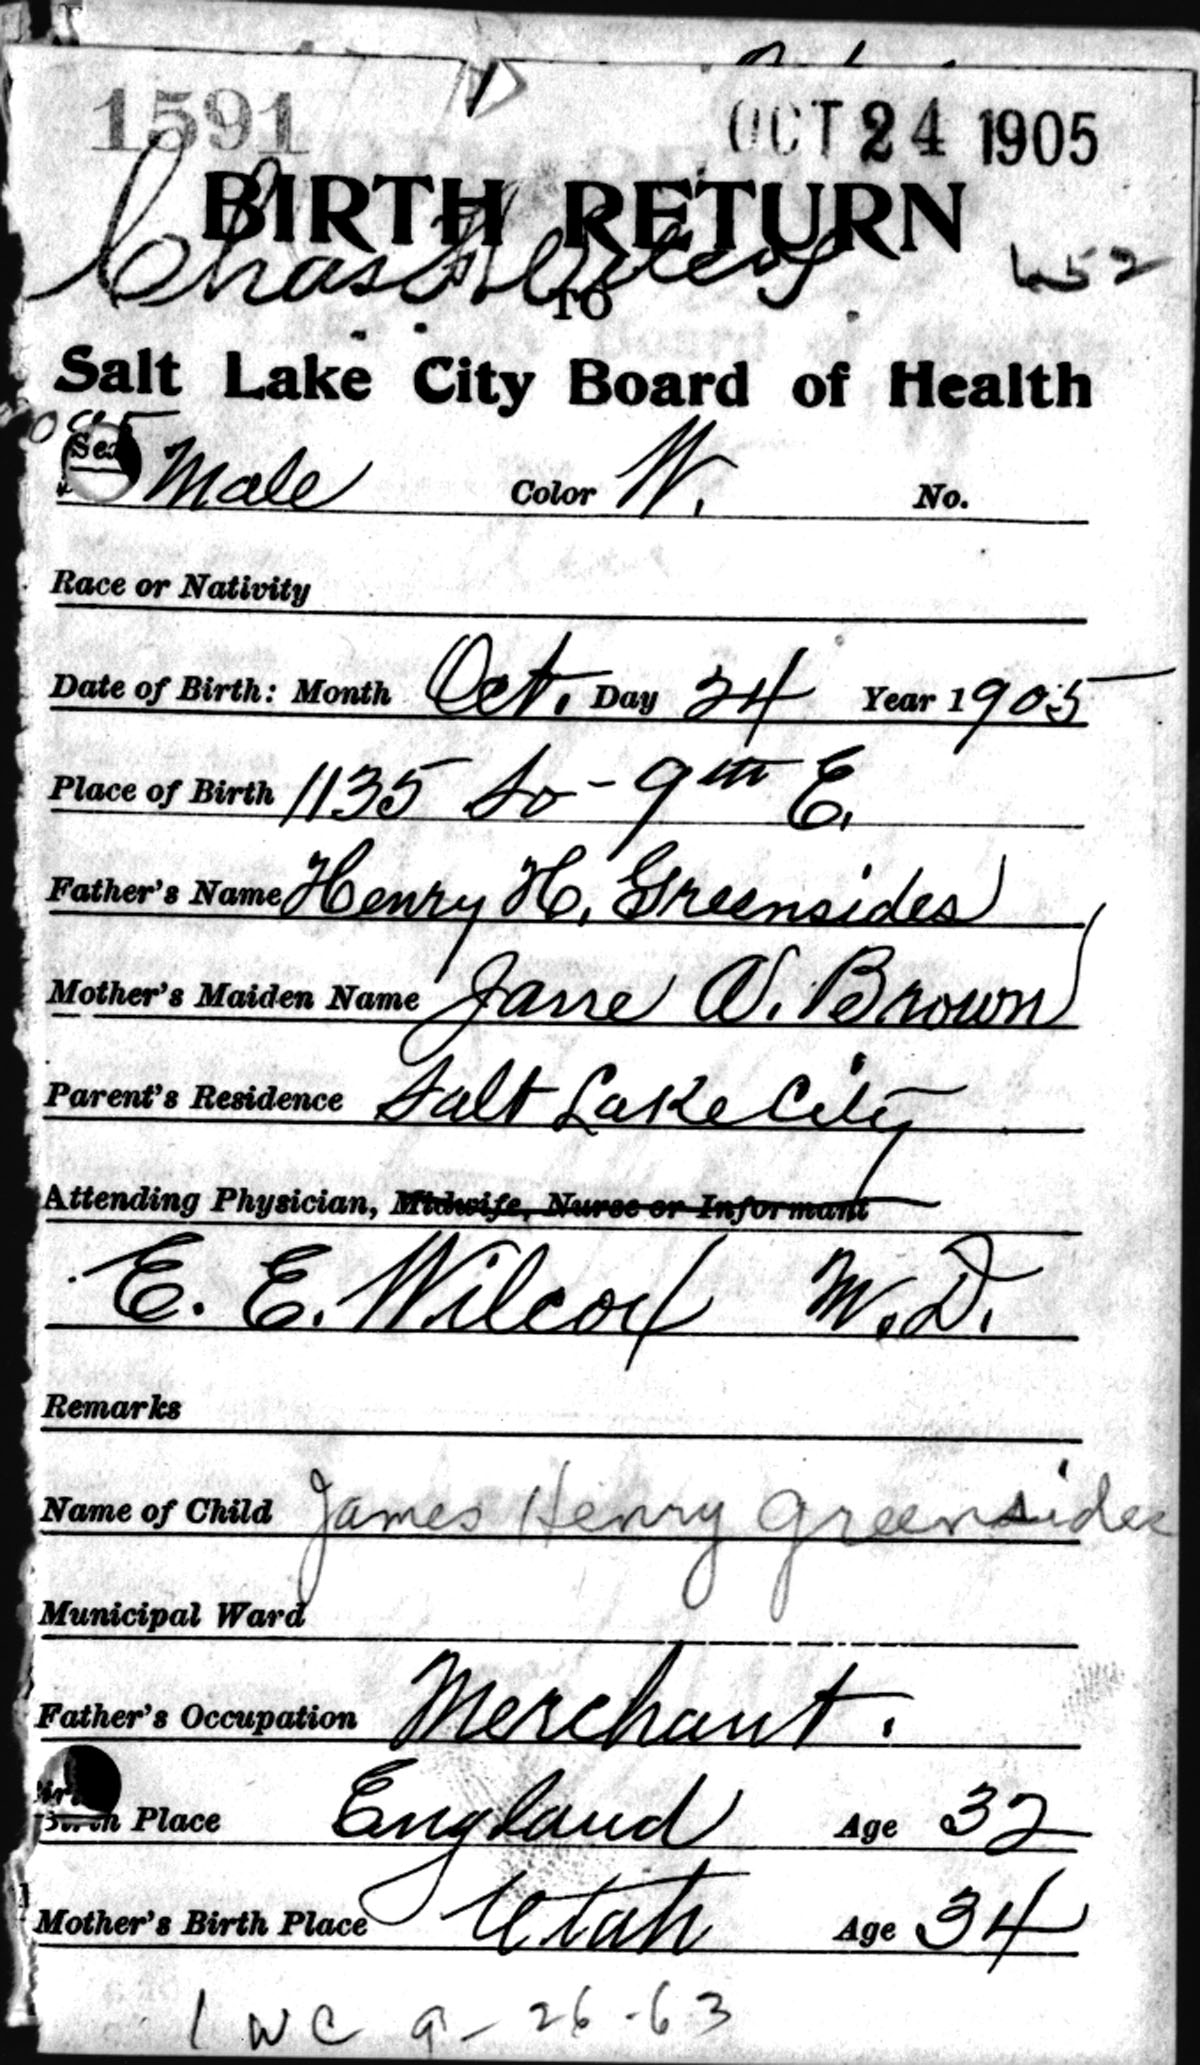 1591 OCT 24 1905
BIRTH RETURN
Chas Wilcox 652
TO
Salt Lake City Board of Health
Sex Male Color W. No.
Race or Nativity
Date of Birth: Month Oct. Day 24 Year 1905
Place of Birth 1135 So - 9th E.
Father's Name Henry H. Greensides
Mother's Maiden Name Jane W. Brown
Parent's Residence Salt Lake City
Attending Physician, Midwife, Nurse or Informant
E. E. Wilcox M.D.
Remarks
Name of Child James Henry Greensides
Municipal Ward
Father's Occupation Merchant.
Birth Place England Age 32
Mother's Birth Place Utah Age 34
1 WC 9-26-63